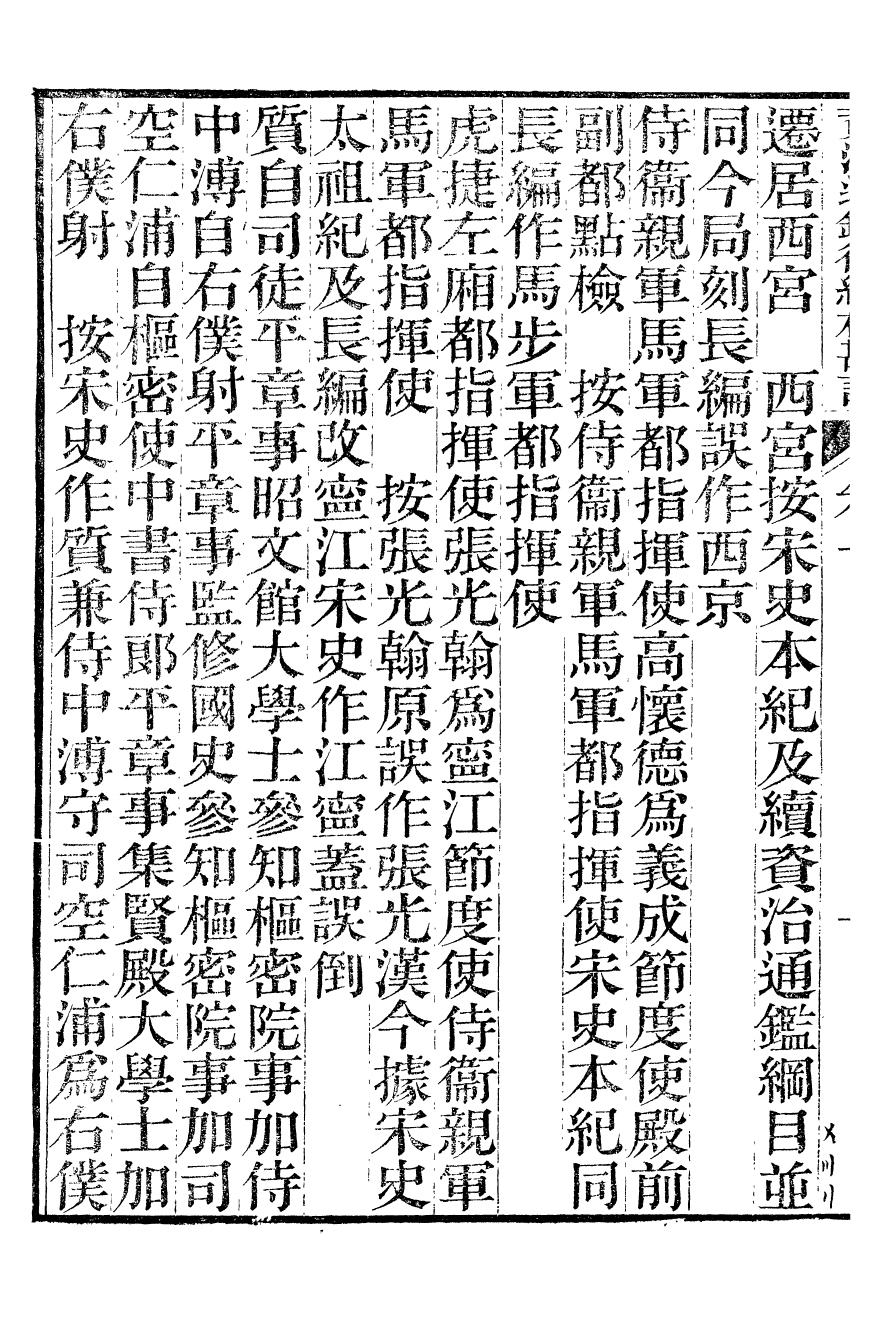 遷居西宮　西宮按宋史本紀及續資治通鑑綱目並
同今局刻長編誤作西京
侍衞親軍馬軍都指揮使高懷德爲義成節度使殿前
副都點檢　按侍衞親軍馬軍都指揮使宋史本紀同
長編作馬步軍都指揮使
虎捷左廂都指揮使張光翰爲寍江節度使侍衞親軍
馬軍都指揮使　按張光翰原誤作張光漢今據宋史
太祖紀及長編改寍江宋史作江寍蓋誤倒
質自司徒平章事昭文館大學士參知樞密院事加侍
中溥自右僕射平章事監修國史參知樞密院事加司
空仁浦自樞密使中書侍郎平章事集賢殿大學士加
右僕射　按宋史作質兼侍中溥守司空仁浦爲右僕